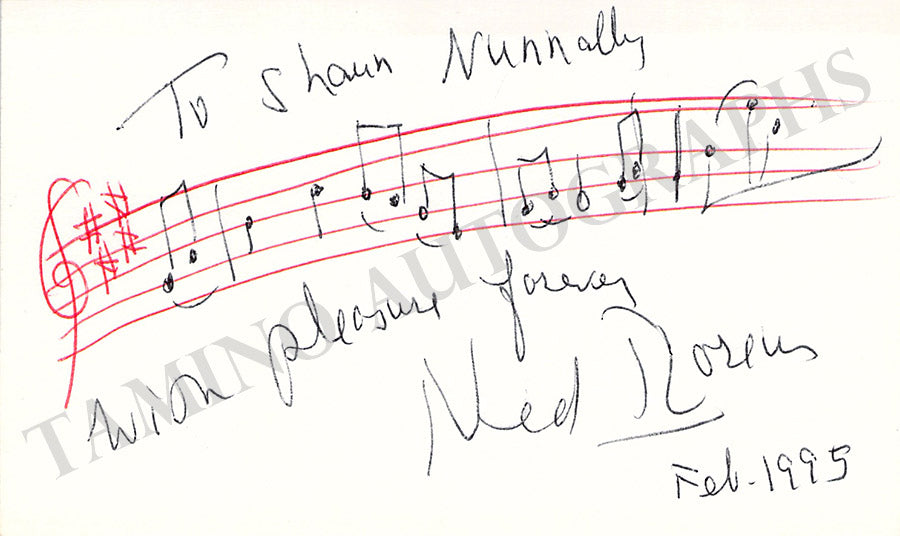 To Shaun Nunnally
With pleasure forever
Ned Rorem
Feb. 1995
TAMINO AUTOGRAPHS